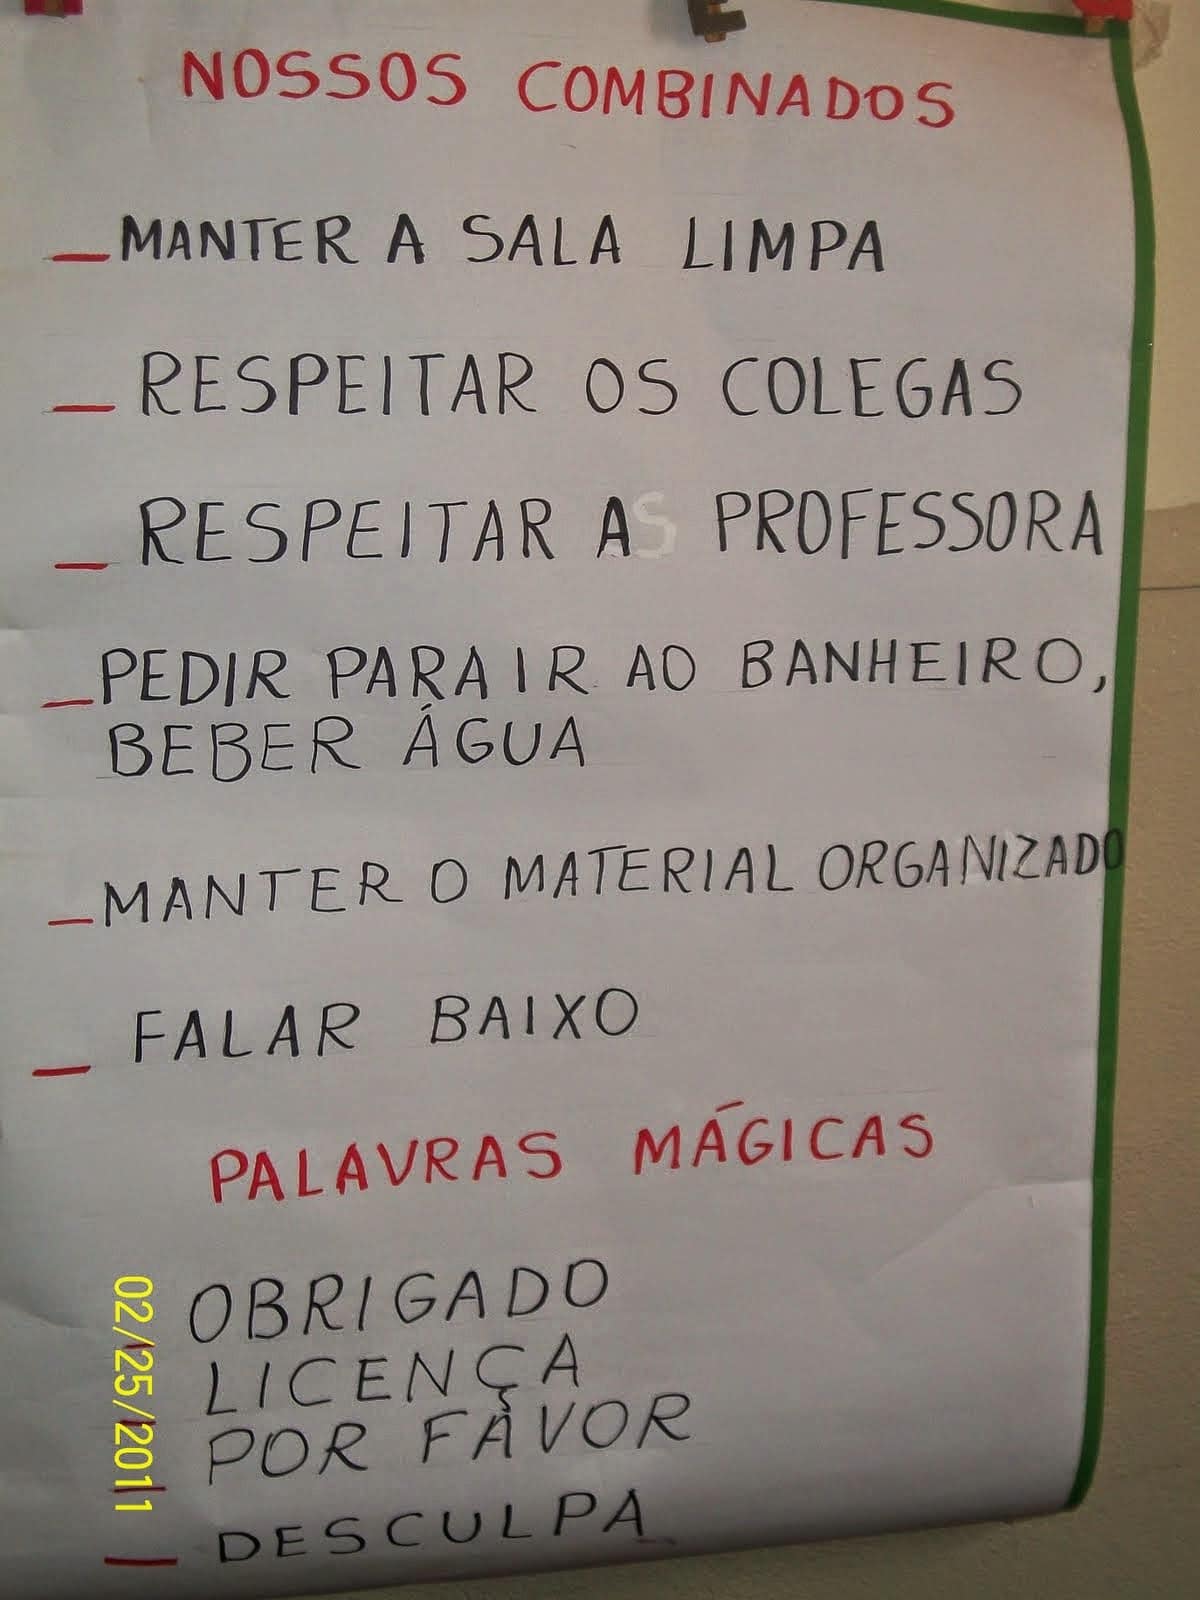 NOSSOS COMBINADOS
_ MANTER A SALA LIMPA
_ RESPEITAR OS COLEGAS
_ RESPEITAR AS PROFESSORA
_ PEDIR PARA IR AO BANHEIRO,
BEBER ÁGUA
_ MANTER O MATERIAL ORGANIZADO
_ FALAR BAIXO
PALAVRAS MÁGICAS
_ OBRIGADO
_ LICENÇA
_ POR FAVOR
_ DESCULPA
02/25/2011